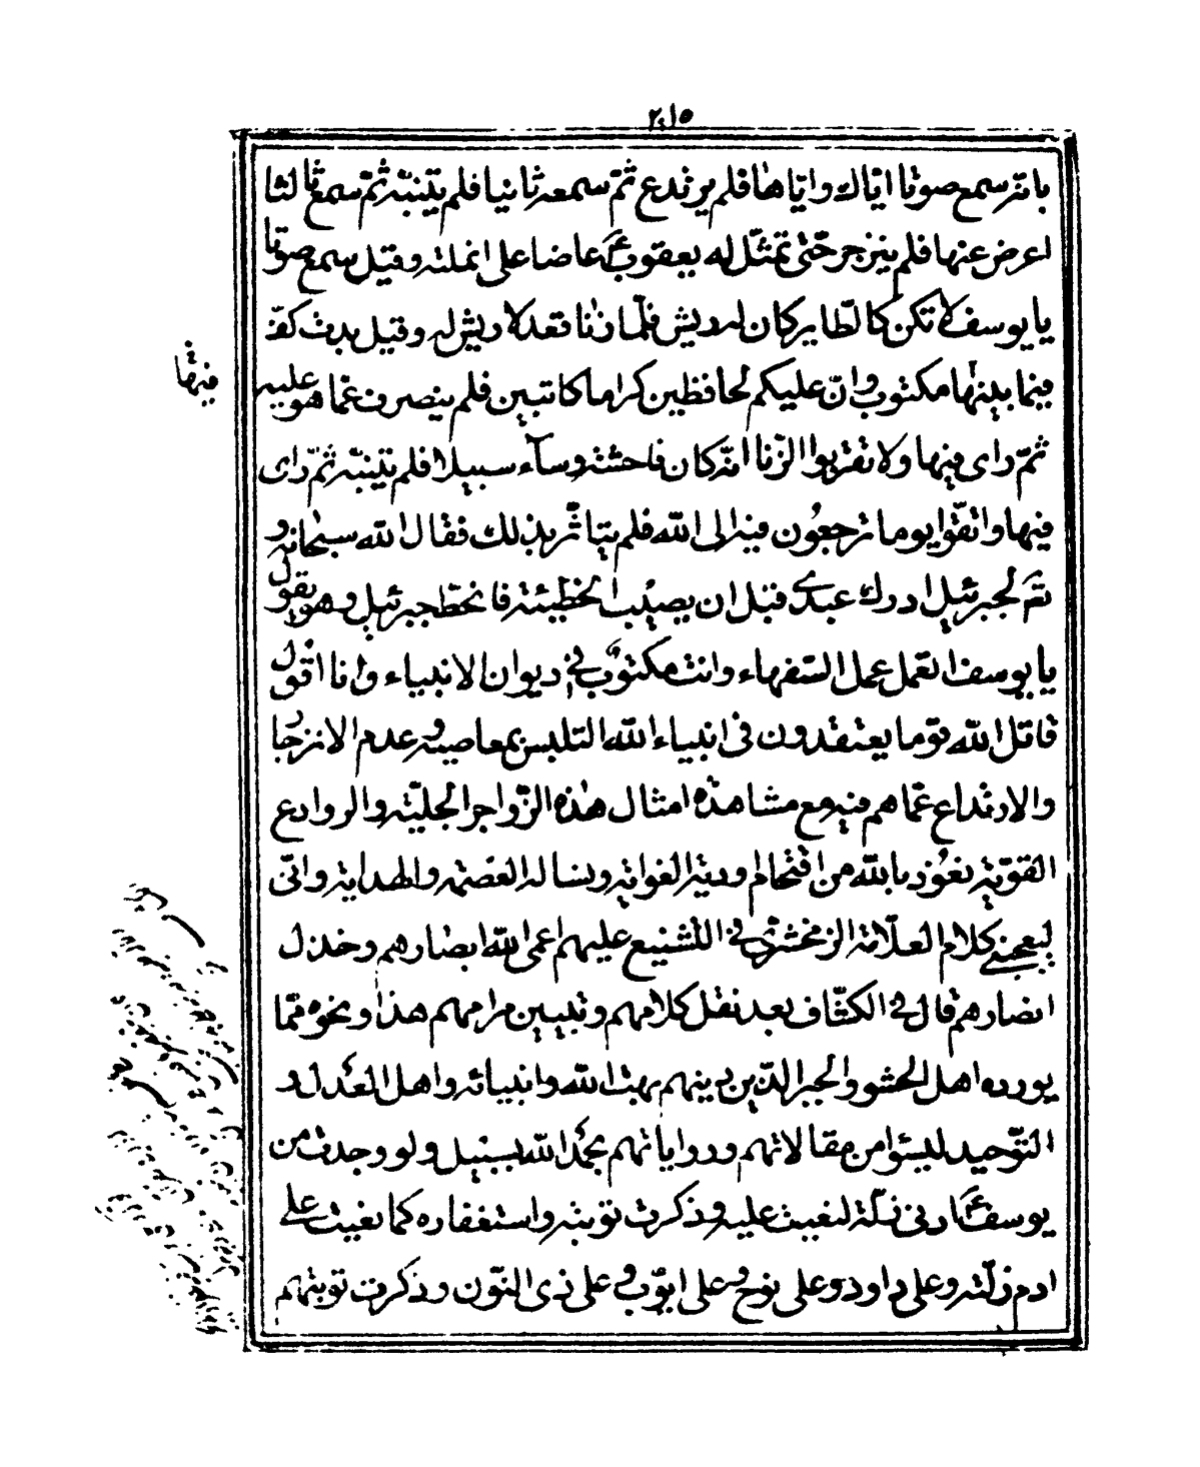 ٢٤١٥
بانّه سمع صوتا ايّاك وايّاها فلم يرتدع ثمّ سمعه ثانيا فلم يتنبّه ثمّ سمع ثالثا
اعرض عنها فلم ينزجر حتّى تمثّل له يعقوب ع عاضا على انملته وقيل سمع صوتا
يا يوسف لا تكن كالطّاير كان له ريش فلمّا زنا قعد لا ريش له وقيل بدت كفّ
فيما بينهما مكتوب وانّ عليكم لحافظين كراما كاتبين فلم ينصرف عمّا هو عليه
فيها
ثمّ راى فيها ولا تقربوا الزّنا انّه كان فاحشة وساء سبيلا فلم يتنبّه ثمّ راى
فيها واتقّوا يوما ترجعون فيه الى الله فلم يتاثّر بذلك فقال الله سبحانه و
تم لجبرئيل ادرك عبدى قبل ان يصيب الخطيئة فانحطّ جبرئيل وهو يقول
يا يوسف العمل عمل السّفهاء وانت مكتوب فى ديوان الانبياء وانا اقول
قاتل الله قوما يعتقدون فى انبياء الله التلبس بمعاصيه وعدم الانزجار
والارتداع عمّا هم فيه مع مشاهدة امثال هذه الزّواجر الجليّة والروادع
القويّة نعوذ بالله من اقتحام ودية الغواية ونساله العصمة والهداية وانّى
ليعجبنى كلام العلّامة الزمخشرى فى التشنيع عليهم اعمى الله ابصارهم وخذل
انصارهم قال فى الكشّاف بعد نقل كلامهم وتبيين مرامهم هذا ونحوه ممّا
يورده اهل الحشو والجبر الذّين دينهم بهت الله وانبيائه واهل العدل و
التوّحيد ليسوا من مقالاتهم ورواياتهم بحمد الله بسبيل ولو وجدت من
يوسف ع ادنى زلّة لنعيت عليه وذكرت توبته واستغفاره كما نعيت على
ادم زلّته وعلى داود وعلى نوح وعلى ايوّب وعلى ذى النّون وذكرت توبتهم